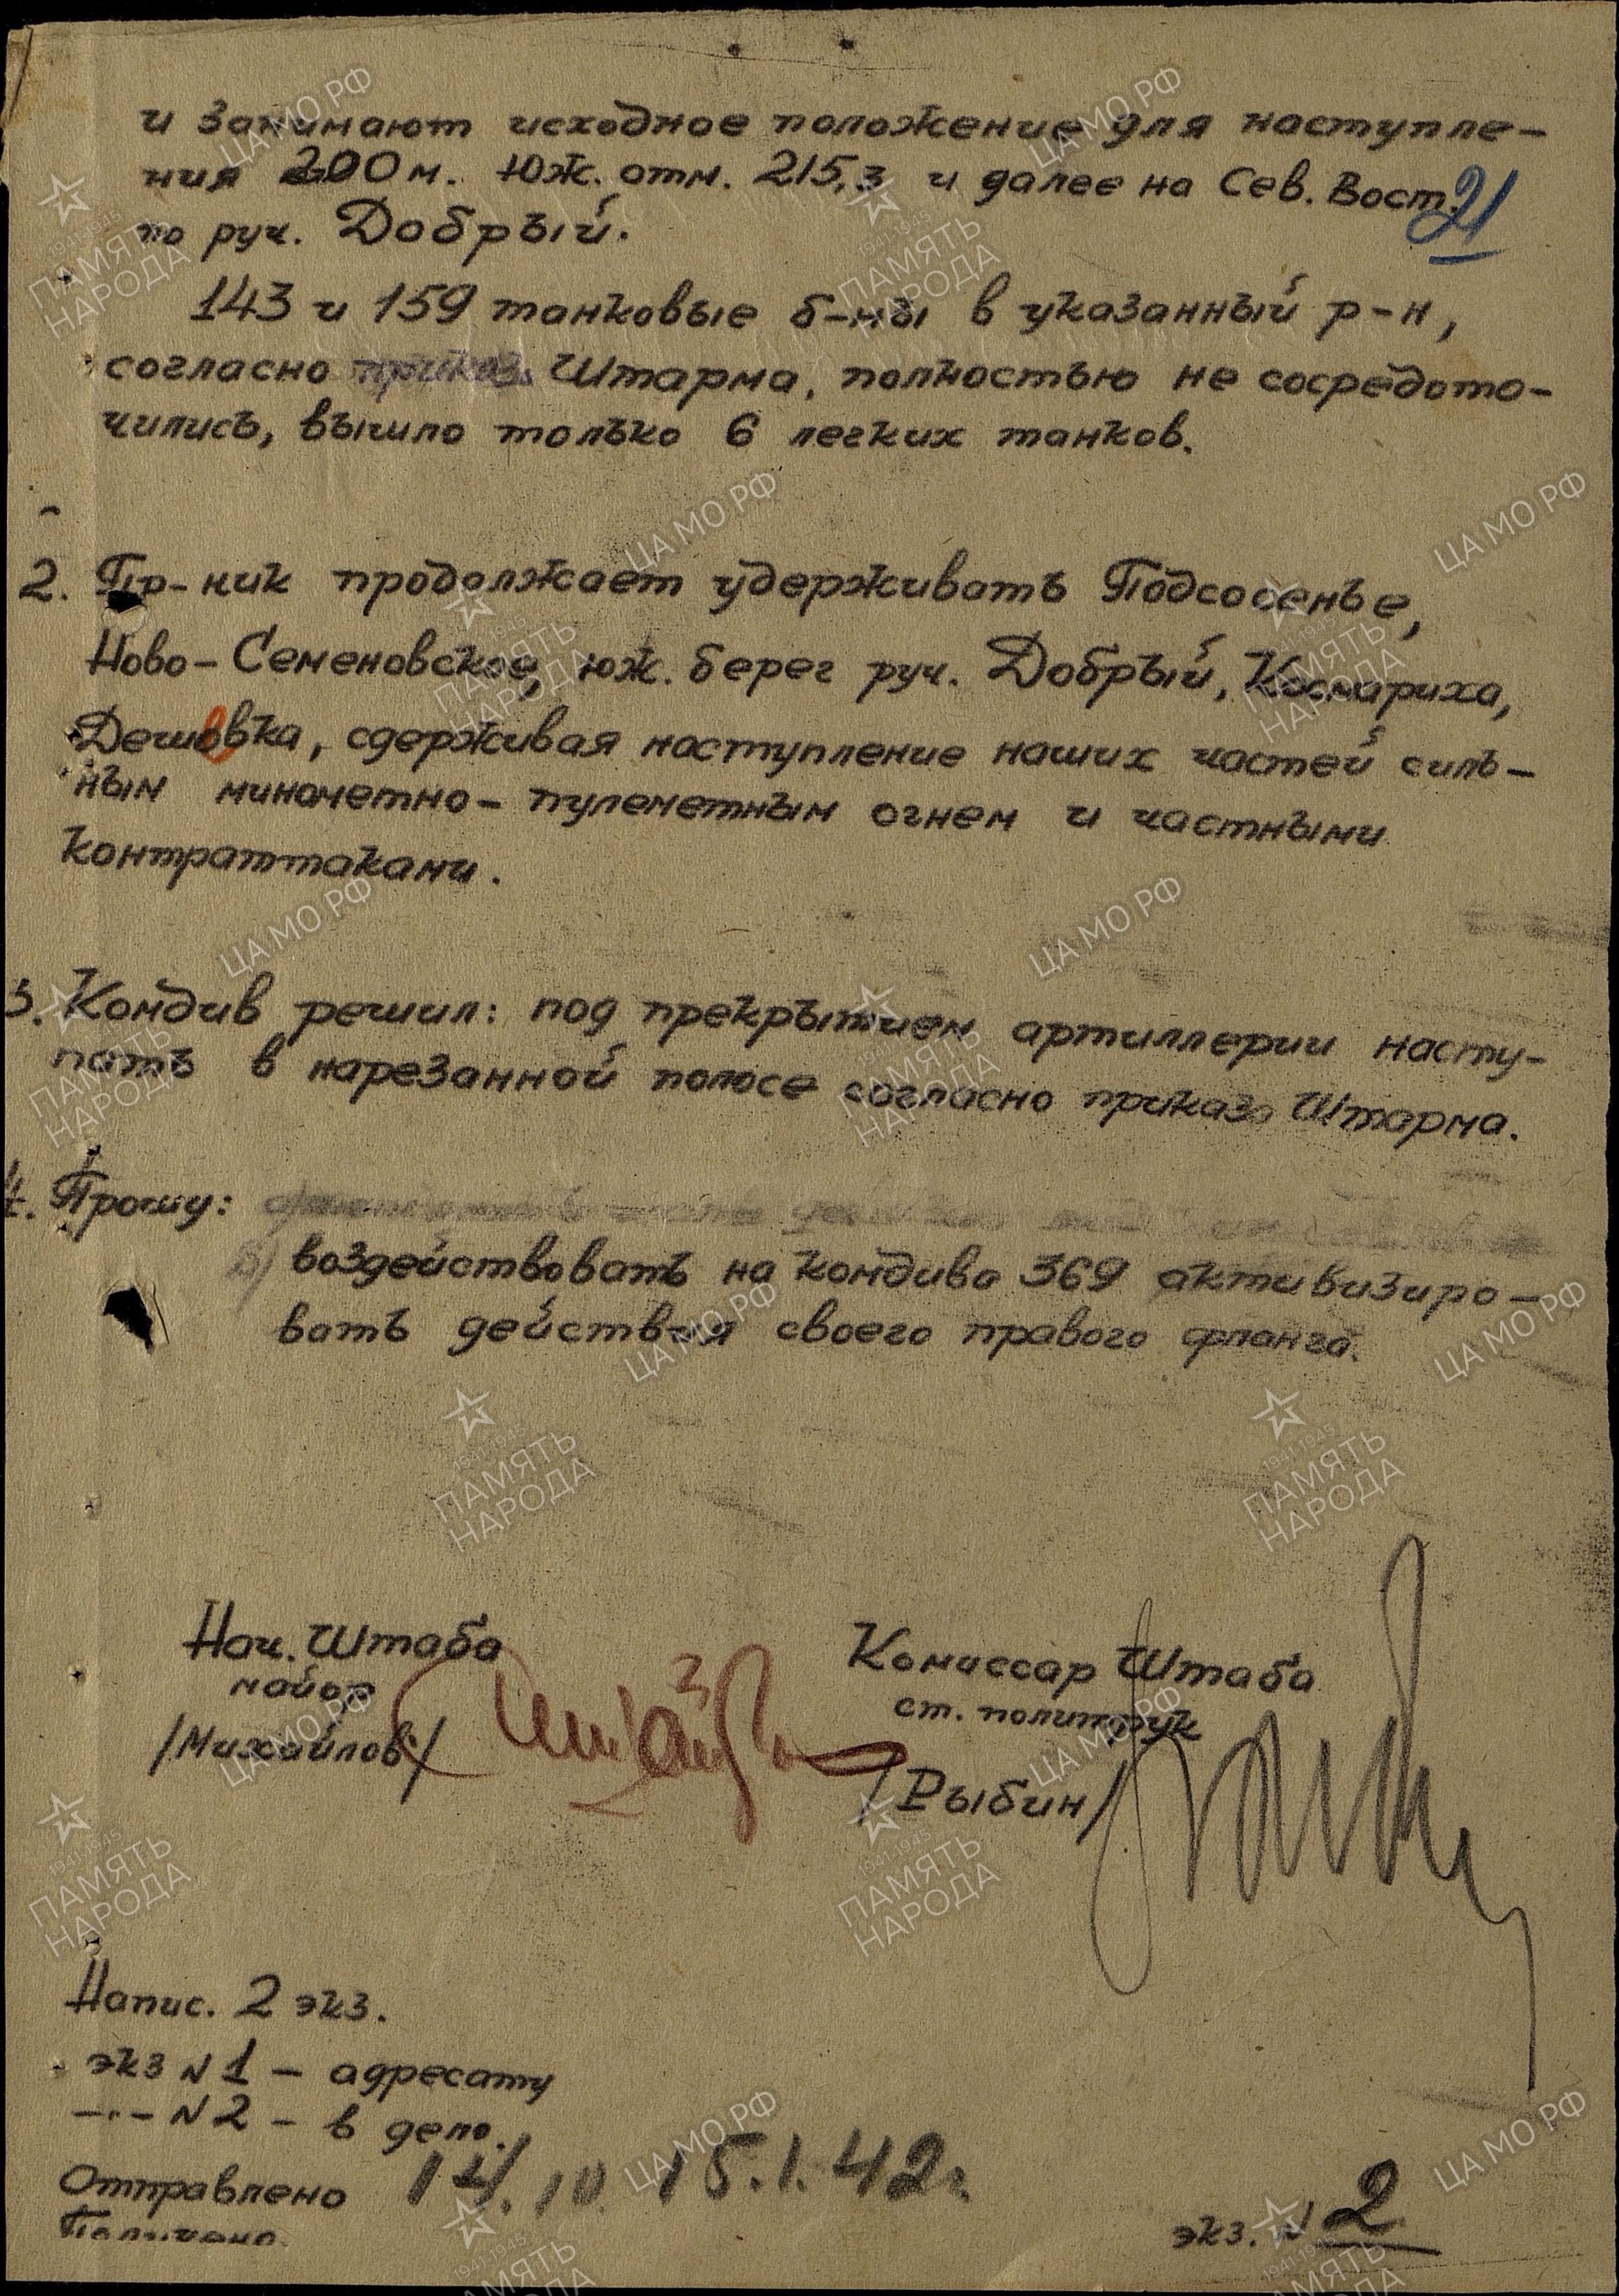 и занимают исходное положение для наступле-
ния 200 м. юж. отм. 215,3 и далее на Сев. Вост.
21
по руч. Добрый.
143 и 159 танковые б-ны в указанный р-н,
согласно приказа Штарма, полностью не сосредото-
чились, вышло только 6 легких танков.
2. Пр-ник продолжает удерживать Подсосенье,
Ново-Семеновское, юж. берег руч. Добрый, Космариха,
Дешовка, сдерживая наступление наших частей силь-
ным минометно-пулеметным огнем и частными
контраттаками.
3. Комдив решил: под прекрытием артиллерии насту-
пать в нарезанной полосе согласно приказа Штарма.
4. Прошу:
б) воздействовать на комдива 369 активизиро-
вать действ-я своего правого фланга.
Нач. Штаба
майор
/Михайлов/
Комиссар Штаба
ст. политрук
/Рыбин/
Напис. 2 экз.
экз N 1 - адресату
-"- N 2 - в дело.
Отправлено 14.10 15.1.42 г.
Получено
экз. N 2
ЦА МО РФ
1941-1945
ПАМЯТЬ
НАРОДА